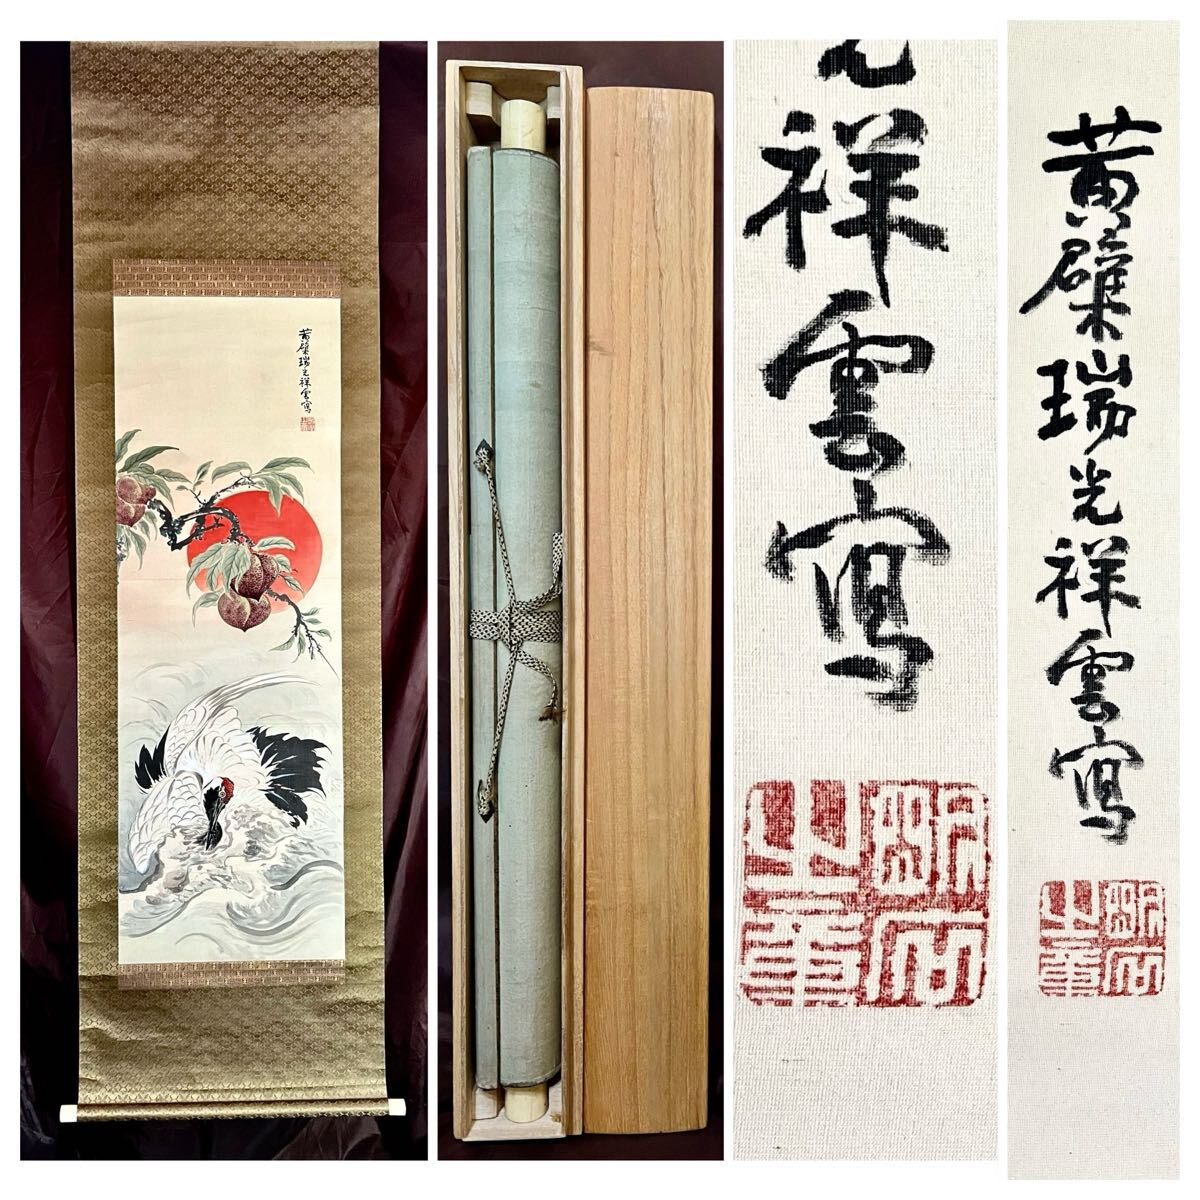 黄檗瑞光祥雲寫
祥雲寫
黄檗瑞光祥雲寫